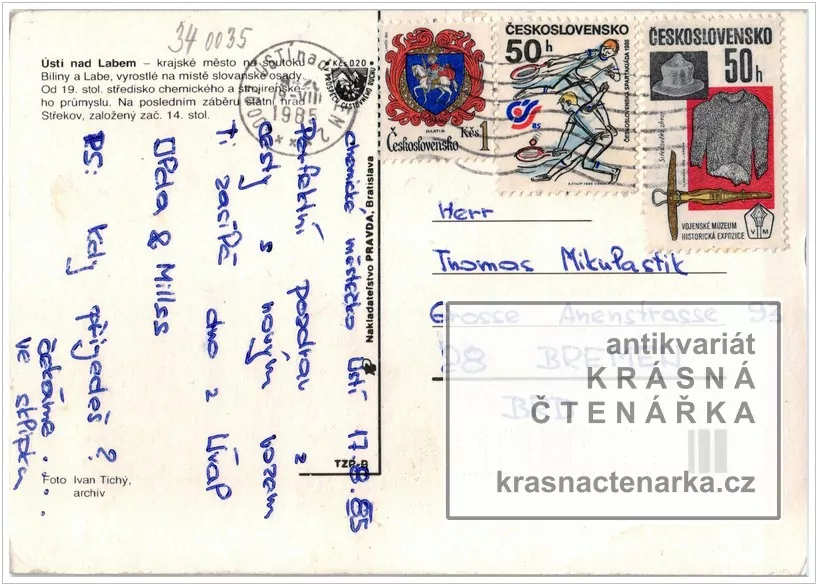 34 0035
Ústí nad Labem – krajské město na soutoku
Biliny a Labe, vyrostlé na místě slovanské osady.
Od 19. stol. středisko chemického a strojírenské-
ho průmyslu. Na posledním záběru státní hrad
Střekov, založený zač. 14. stol.
1985
Kčs 0,20
MARTIN
Československo Kčs 1
ČESKOSLOVENSKO
50h
ČESKOSLOVENSKÁ SPARTAKIÁDA 1985
85
ČESKOSLOVENSKO
50h
VOJENSKÉ MUZEUM
HISTORICKÁ EXPOZICE
V M
chemické městečko Ústí 17.8.85
Perfektní pozdrav z
cesty s novým vozem
Ti zasílá duo z
Opda & Millss
PS: Kdy přijedeš?
čekáme . . . .
ve
Nakladatelství PRAVDA, Bratislava
TZP-B
Foto Ivan Tichý,
archiv
Herr
Thomas Mikulastik
Grosse Anenstrasse 93
28 BREMEN
BRD
antikvariát
KRÁSNÁ
ČTENÁŘKA
krasnactenarka.cz